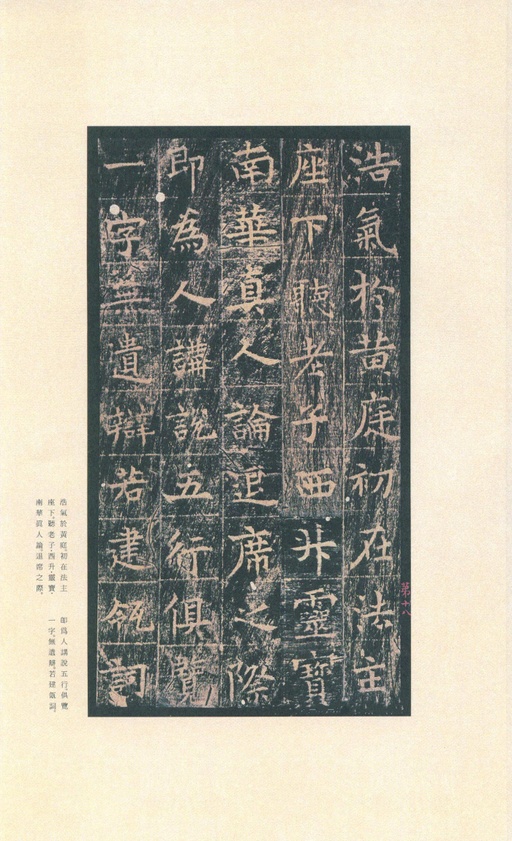 浩氣於黄庭初在法主
座下聽老子西升靈寶
南華真人論退席之際
即為人講說五行俱覽
一字無遺辯若建瓴詞
第十八
浩氣於黃庭。初在法主
座下。聽老子・西升靈寶・
南華眞人論。退席之際。
卽爲人講說五行。俱覽
一字。無遺辯。若建瓴詞。